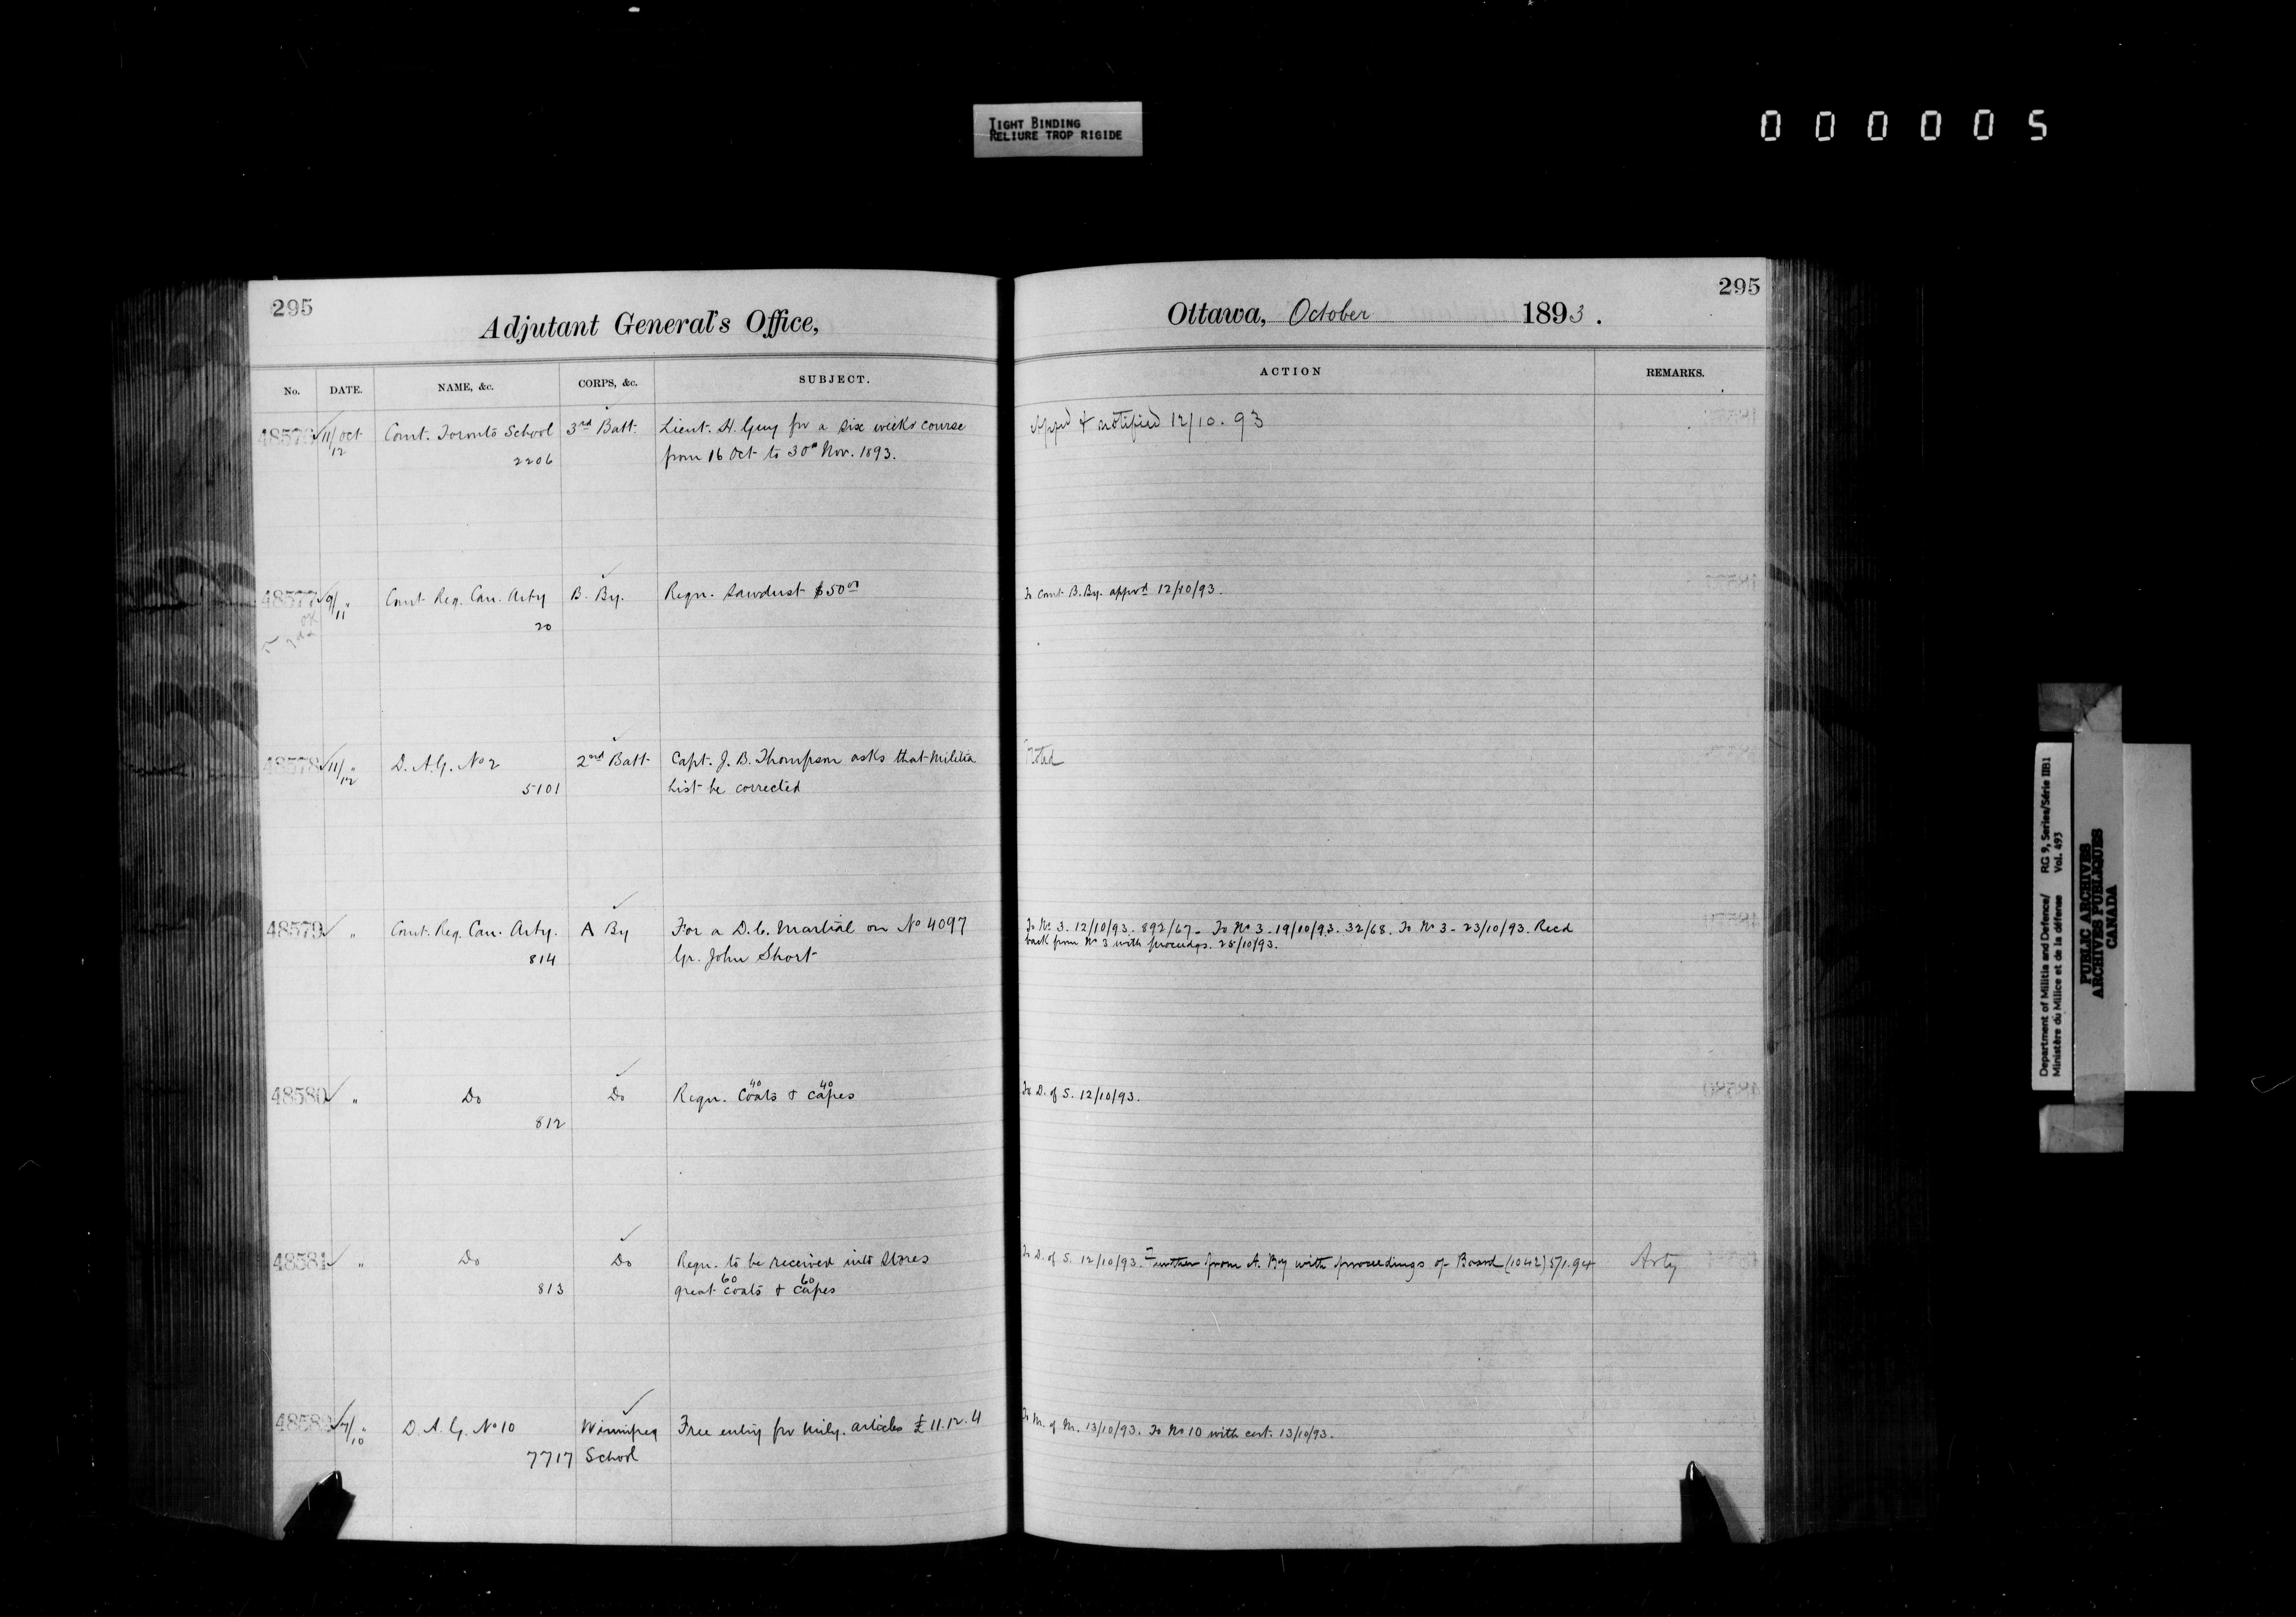 TIGHT BINDING
RELIURE TROP RIGIDE
000005
295
Adjutant General's Office,
No. DATE. NAME, &c. CORPS, &c. SUBJECT.
48576 11/12 Oct Comt. Toronto School 3rd Batt. Lieut. H. Guy for a six weeks course
2206 from 16 Oct to 30 Nov. 1893.
48577 9/11 " Comt Reg. Can. Arty B. By. Reqn. Sawdust $50 00
20
48578 11/12 " D. A. G. No 2 2nd Batt Capt. J. B. Thompson asks that Militia
5101 List be corrected
48579 " Comt. Reg. Can. Arty. A By For a D. C. Martial on No 4097
814 Gr. John Short
48580 " Do Do Reqn. 40 Coats & 40 Capes
812
48581 " Do Do Reqn. to be received into Stores
813 great 60 Coats & 60 Capes
48582 7/10 " D. A. G. No 10 Winnipeg Free entry for Mily. articles £11.12.4
7717 School
295
Ottawa, October 1893.
ACTION REMARKS.
Appd & notified 12/10.93
To Comt B. By. appvd 12/10/93.
Noted
To No 3. 12/10/93. 892/67 - To No 3 - 19/10/93. 32/68. To No 3 - 23/10/93. Recd
back from No 3 with proceedgs. 25/10/93.
To D. of S. 12/10/93.
To D. of S. 12/10/93. Further from A. By with proceedings of Board (1042) 5/1.94 Arty
To M. of M. 13/10/93. To No 10 with cert. 13/10/93.
Department of Militia and Defence/ RG 9, Series/Série IIB1
Ministère du Milice et de la défense Vol. 493
PUBLIC ARCHIVES
ARCHIVES PUBLIQUES
CANADA